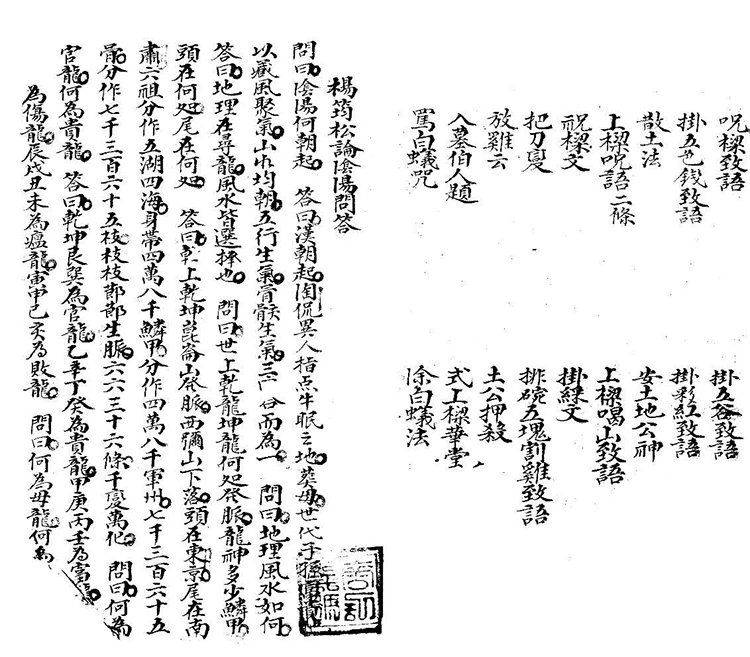 呪樑致語 掛五谷致語
掛五色錢致語 掛彩紅致語
散土法 安土地公神
上樑呪語二條 上樑喝山致語
祝樑文 掛綠文
把刀 排碗五塊割雞致語
放雞云 土公押殺
入墓伯人題 式上樑華堂
罵白蟻咒 除白蟻法
楊筠松論陰陽問答
問曰陰陽何朝起 答曰漢朝起陶侃異人指点牛眠之地葬母世代子孫
以藏風聚氣山水均朝五行生氣骨骸生氣三合而為一 問曰地理風水如何
答曰地理在尋龍風水皆選擇也 問曰世上乾龍坤龍何処發脈龍神多少鱗甲
頭在何処尾在何処 答曰乾上乾坤崑崙山發脈西彌山下落頭在東京尾在南
肅六祖分作五湖四海身帶四萬八千鱗甲分作四萬八千軍州七千三百六十五
骨分作七千三百六十五枝枝枝節節生脈六六三十六條千變萬化 問曰何為
官龍何為貴龍 答曰乾坤艮巽為官龍乙辛丁癸為貴龍甲庚丙壬為富龍
為傷龍辰戌丑未為瘟龍寅申巳亥為敗龍 問曰何為母龍何為